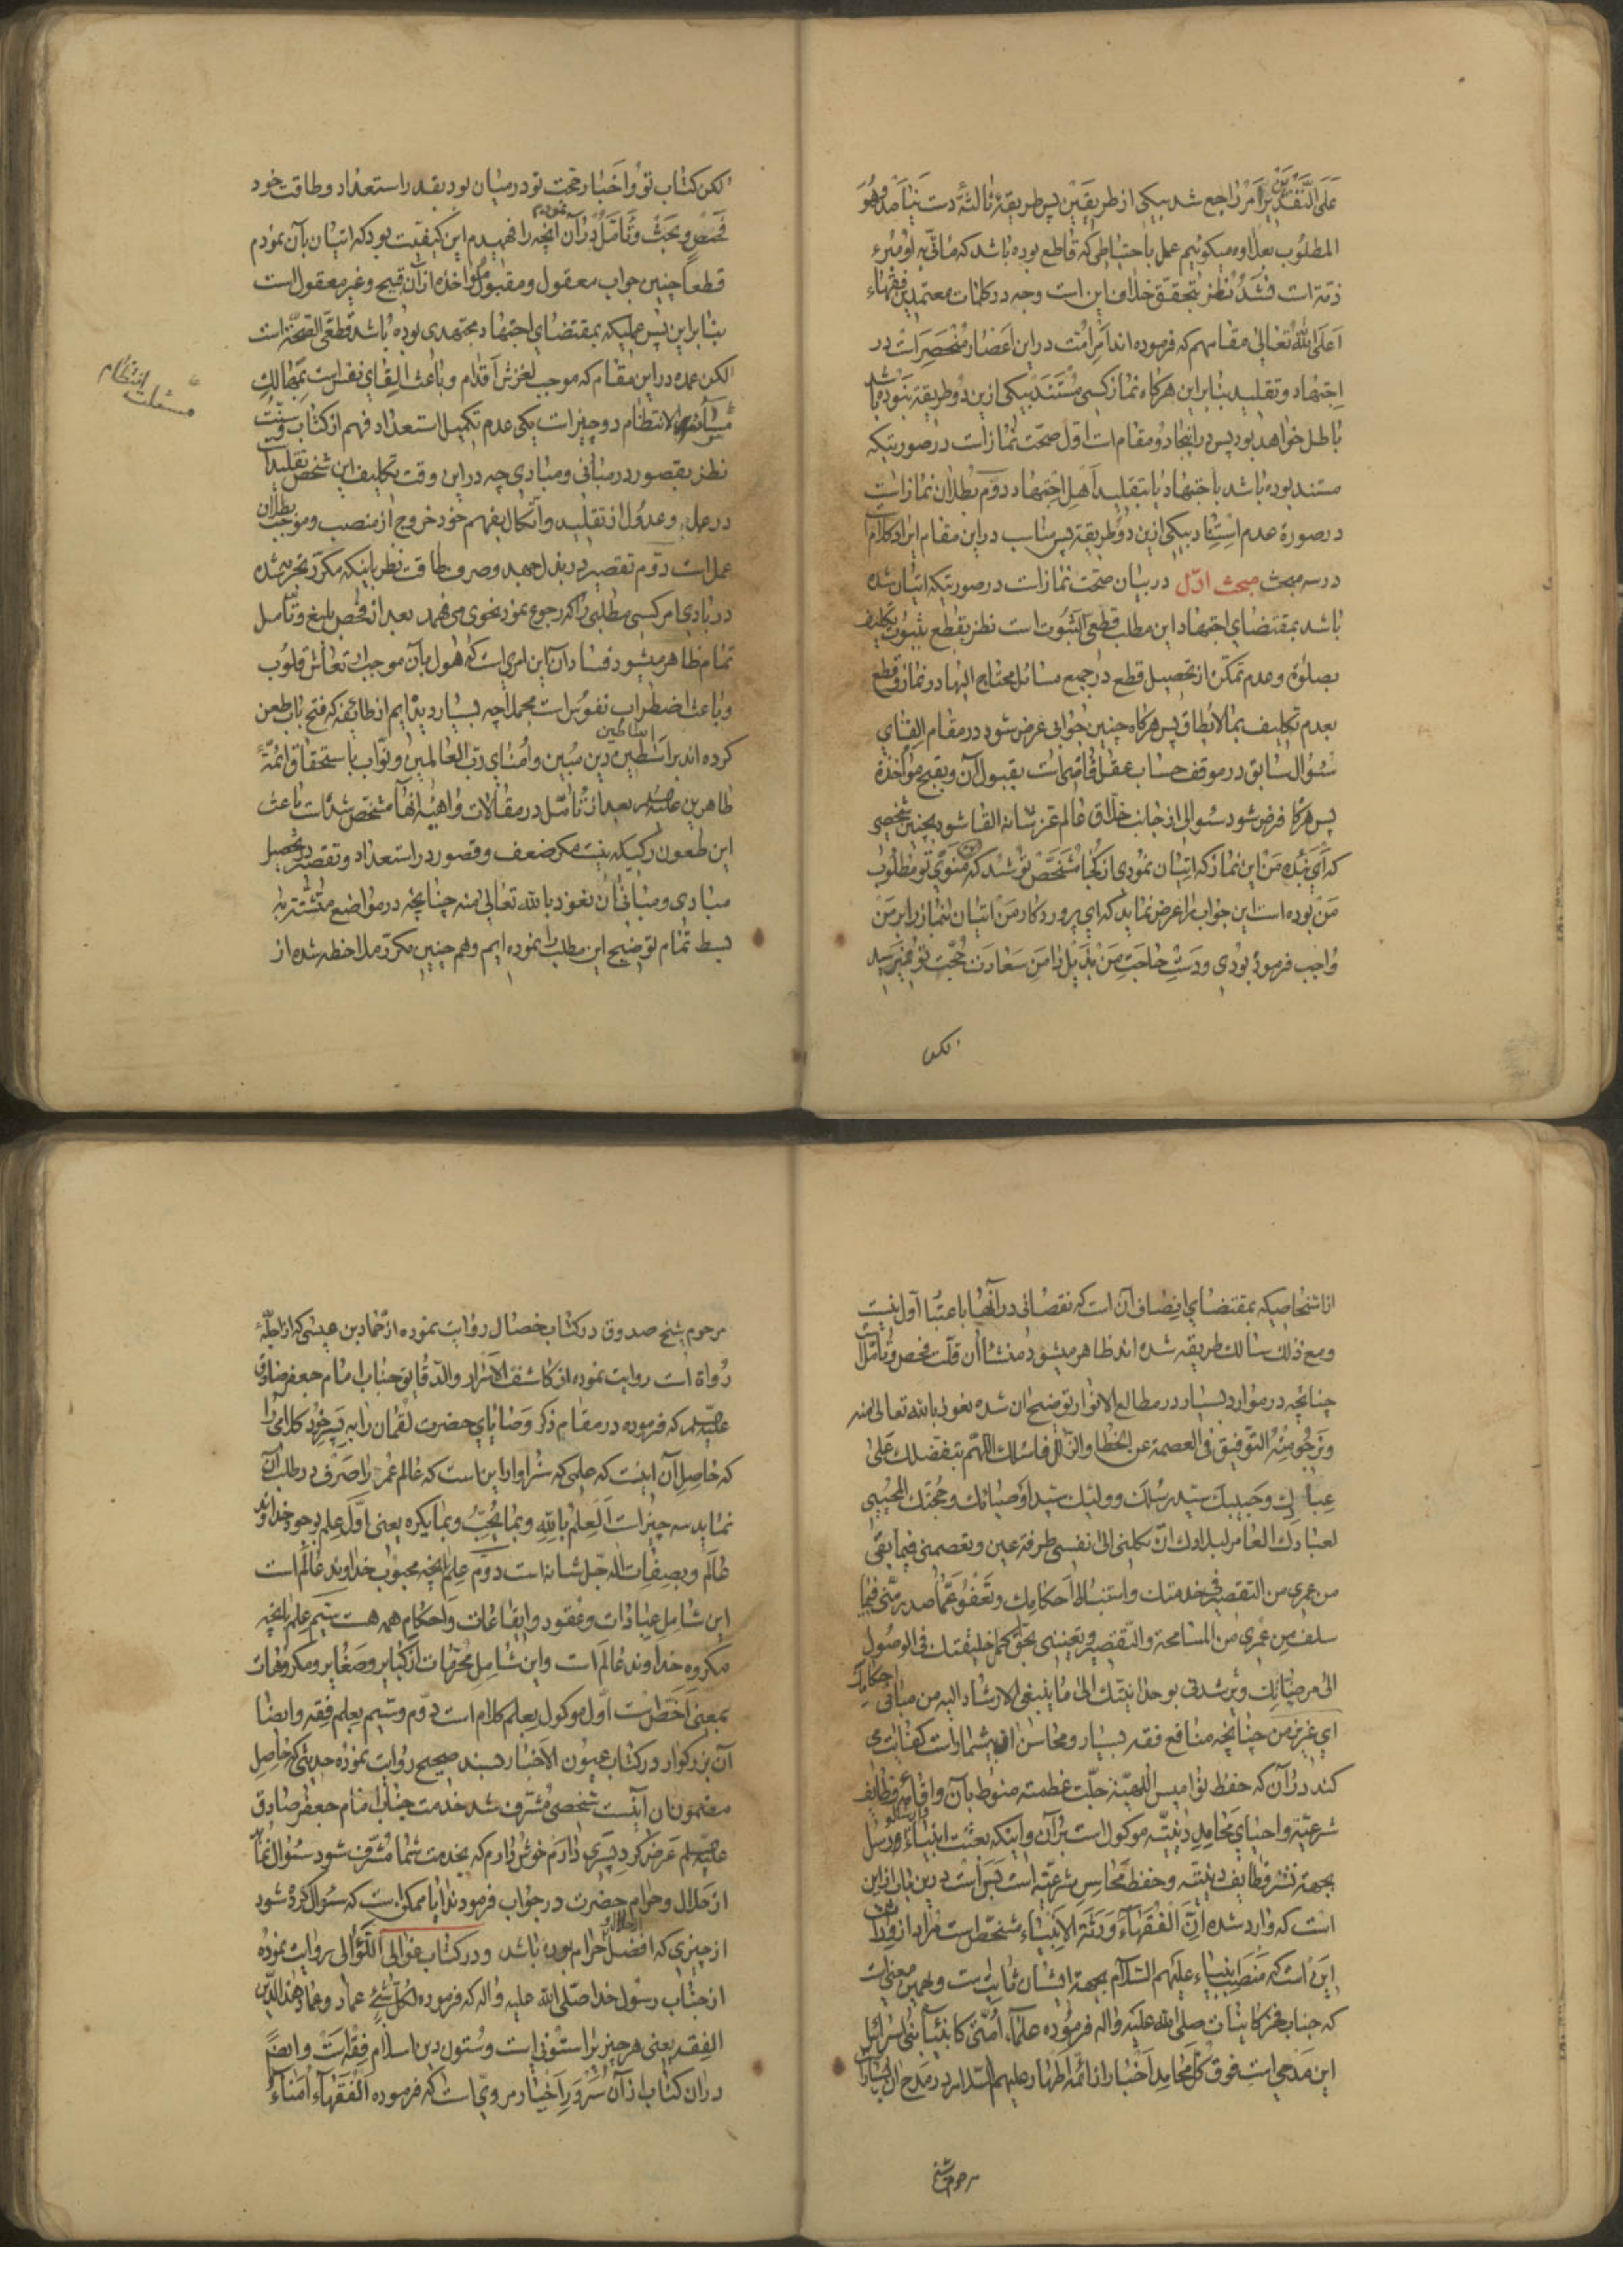 علی التقدیرین امر راجع شد بیکی از طریقین پس طریقهٔ ثالثة دست نیامد و هو
المطلوب بعلاوه میکوئیم عمل باحتیاطی که قاطع بوده باشد که مأتی به او مبرء
ذمّة است فشد نظر بتحقق خلاف این است وجه در کلمات معتمدین فقهاء
اعلی الله تعالی مقامهم که فرموده اند امر امّت در این اعصار منحصر است در
اجتهاد و تقلید بنابر این هرکاه نماز کسی مستند بیکی ازین دو طریقة نبوده باشد
باطل خواهد بود پس در اینجا دو مقام است اوّل صحّت نماز است در صورتیکه
مستند بوده باشد باجتهاد یا بتقلید اهل اجتهاد دوّم بطلان نماز است
در صورة عدم استناد بیکی ازین دو طریقة پس مناسب در این مقام ایراد کلام است
در سه مبحث مبحث اوّل در بیان صحّت نماز است در صورتیکه اتیان شده
باشد بمقتضای اجتهاد این مطلب قطعی الثبوت است نظر بقطع بثبوت تکلیف
بصلوة و عدم تمکّن از تحصیل قطع در جمیع مسائل محتاج الیها در نماز و قطع
بعدم تکلیف بما لا یطاق پس هرکاه چنین جوابی عرض شود در مقام القای
سئوال سابق در موقف حساب عقل قاضی است بقبول آن و بقبح مؤاخذة
پس هرکا فرض شود سئوالی از جانب خلاق عالم عزّ شانه القا شود بچنین شخصی
که ای بنده من این نماز که اتیان نمودی از کجا مشخّص تو شد که منوی تو مطلوب
من بوده است این جواب را عرض نماید که ای پروردکار من اتیان بنماز را بر من
واجب فرموده بودی و دست حاجت من بذیل دامن سعادت حجّت تو نمیرسید
لکن
لکن کتاب تو و اخبار حجّت تو در میان بود بقدر استعداد و طاقت خود
فحص و بحث و تأمّل در آن نمودم آنچه را فهمیدم این کیفیّت بود که اتیان بآن نمودم
قطعاً چنین جواب معقول و مقبول و مؤاخذه از آن قبیح و غیر معقول است
بنابر این پس عملیکه بمقتضای اجتهاد مجتهدی بوده باشد قطعی الصحّة است
لکن عمده در این مقام که موجب لغزش اقدام و باعث القای نفس است بمهالک
الانتظام دو چیز است یکی عدم تکمیل استعداد فهم از کتاب و سنّت
مسئلت انتظام
نظر بقصور در مبانی و مبادی چه در این وقت تکلیف این شخص تقلید است
در عمل و عدول از تقلید و اتّکال بفهم خود خروج از منصب و موجب بطلان
عمل است دوّم تقصیر در بذل جهد و صرف طاقت نظر باینکه مکرّر تجربه شده
در بادی امر کسی مطلبی را که رجوع نمود بنحوی می فهمد بعد از فحص بلیغ و تأمّل
تمام ظاهر میشود فساد آن این امری است که هول بآن موجب ارتعاش قلوب
و باعث اضطراب نفوس است مجملا چه بسیار دیده ایم از طائفه که فتح باب طعن
کرده اند بر اساطین دین مبین و امنای ربّ العالمین و نوّاب باستحقاق ائمّهٔ
طاهرین علیهم السلام بعد از تأمّل در مقالات واهیهٔ آنها مشخّص شد که باعث
این طعون رکیکه نیست مکر ضعف و قصور در استعداد و تقصیر در تحصیل
مبادی و مبانی آن نعوذ بالله تعالی منه چنانچه در مواضع متشتّته
بسط تمام توضیح این مطلب را نموده ایم و هم چنین مکرّر ملاحظه شده از
اشخاصیکه بمقتضای انصاف آن است که نقصانی در آنها باعتبار اوّل نیست
و مع ذلک سالک طریقه شده اند ظاهر میشود منشأ آن قلّت فحص و تأمّل است
چنانچه در موارد بسیار در مطالع الانوار توضیح ان شده نعوذ بالله تعالی منه
و نرجو منه التوفیق فی العصمة عن الخطاء و الزلل فاسئلک اللهمّ بتفضلک علی
عبادک و حبیبک سید رسلک و ولیّک سید اوصیائک و حجّتک المجیبی
لعبادک العامر لبلادک ان لا تکلنی الی نفسی طرفة عین و تعصمنی فیما بقی
من عمری من التقصیر فی خدمتک و استنباط احکامک و تعفو عمّا صدر منّی فیما
سلف من عمری من المسامحة و التقصیر و تعیننی بحقّ محمّد خلیفتک فی الوصول
الی مرضاتک و ترشدنی بوحدانیّتک الی ما ینبغی الارشاد الیه من مبانی احکامک
ای عزیز من چنانچه منافع فقه بسیار و محاسن او بیشمار است کفایت می
کند در آن که حفظ نوامیس الهیّة جلّت عظمته منوط بآن و اقامهٔ وظایف
شرعیّة و احیای محامد دینیّه موکول است بر آن و اینکه بعثت انبیاء و ارسال رسل
بجهة نشر وظایف دینیّه و حفظ محاسن شرعیّه است بس است درین باب ازین
است که وارد شده انّ الفقهاء ورثة الانبیاء مشخّص است مراد از وراثت
این است که منصب انبیاء علیهم السلام بجهة ایشان ثابت است و بهمین معنی است
که جناب فخر کاینات صلی الله علیه و اله فرموده علماء امّتی کانبیاء بنی اسرائیل
این مدحی است فوق کلّ محامد اخبار از ائمّه اطهار علیهم السلام در مدح ال بسیار است
مرحوم شیخ
مرحوم شیخ صدوق در کتاب خصال روایت نموده از حمّاد بن عیسی که از اجلّهٔ
رواة است روایت نموده از کاشف الاسرار و الدّقایق جناب امام جعفر صادق
علیه السلام که فرموده در مقام ذکر وصایای حضرت لقمان را به پسر خود کلامی را
که حاصل آن اینست که علمی که سزاوار این است که عالم عمر را صرف در طلب آن
نماید سه چیز است العلم بالله و بما یحبّ و بما یکره یعنی اوّل علم بوجود خداوند
عالم و بصفات اله جلّ شانه است دوّم علم بآنچه محبوب خداوند عالم است
این شامل عبادات و عقود و ایقاعات و احکام همه هست سیّم علم بآنچه
مکروه خداوند عالم است و این شامل محرّمات از کبایر و صغایر و مکروهات
بمعنی اخص است اوّل موکول بعلم کلام است دوّم و سیّم بعلم فقه و ایضا
آن بزرکوار در کتاب عیون الاخبار بسند صحیح روایت نموده حدیثی که حاصل
مضمون ان اینست شخصی مشرّف شد خدمت جناب امام جعفر صادق
علیه السلام عرض کرد پسری دارم خوش دارم که بخدمت شما مشرّف شود سئوال نماید
از حلال و حرام حضرت در جواب فرمودند ایا ممکن است که سئوال کرده شود
از چیزی که افضل از حلال و حرام بوده باشد و در کتاب غوالی اللّؤالی روایت نموده
از جناب رسول خدا صلّی الله علیه و اله که فرموده لکلّ شیء عماد و عماد هذا الدّین
الفقه یعنی هر چیز را ستونی است و ستون دین اسلام فقه است و ایضاً
در ان کتاب از آن سرور اخیار مرویّ است که فرموده الفقهاء امناء